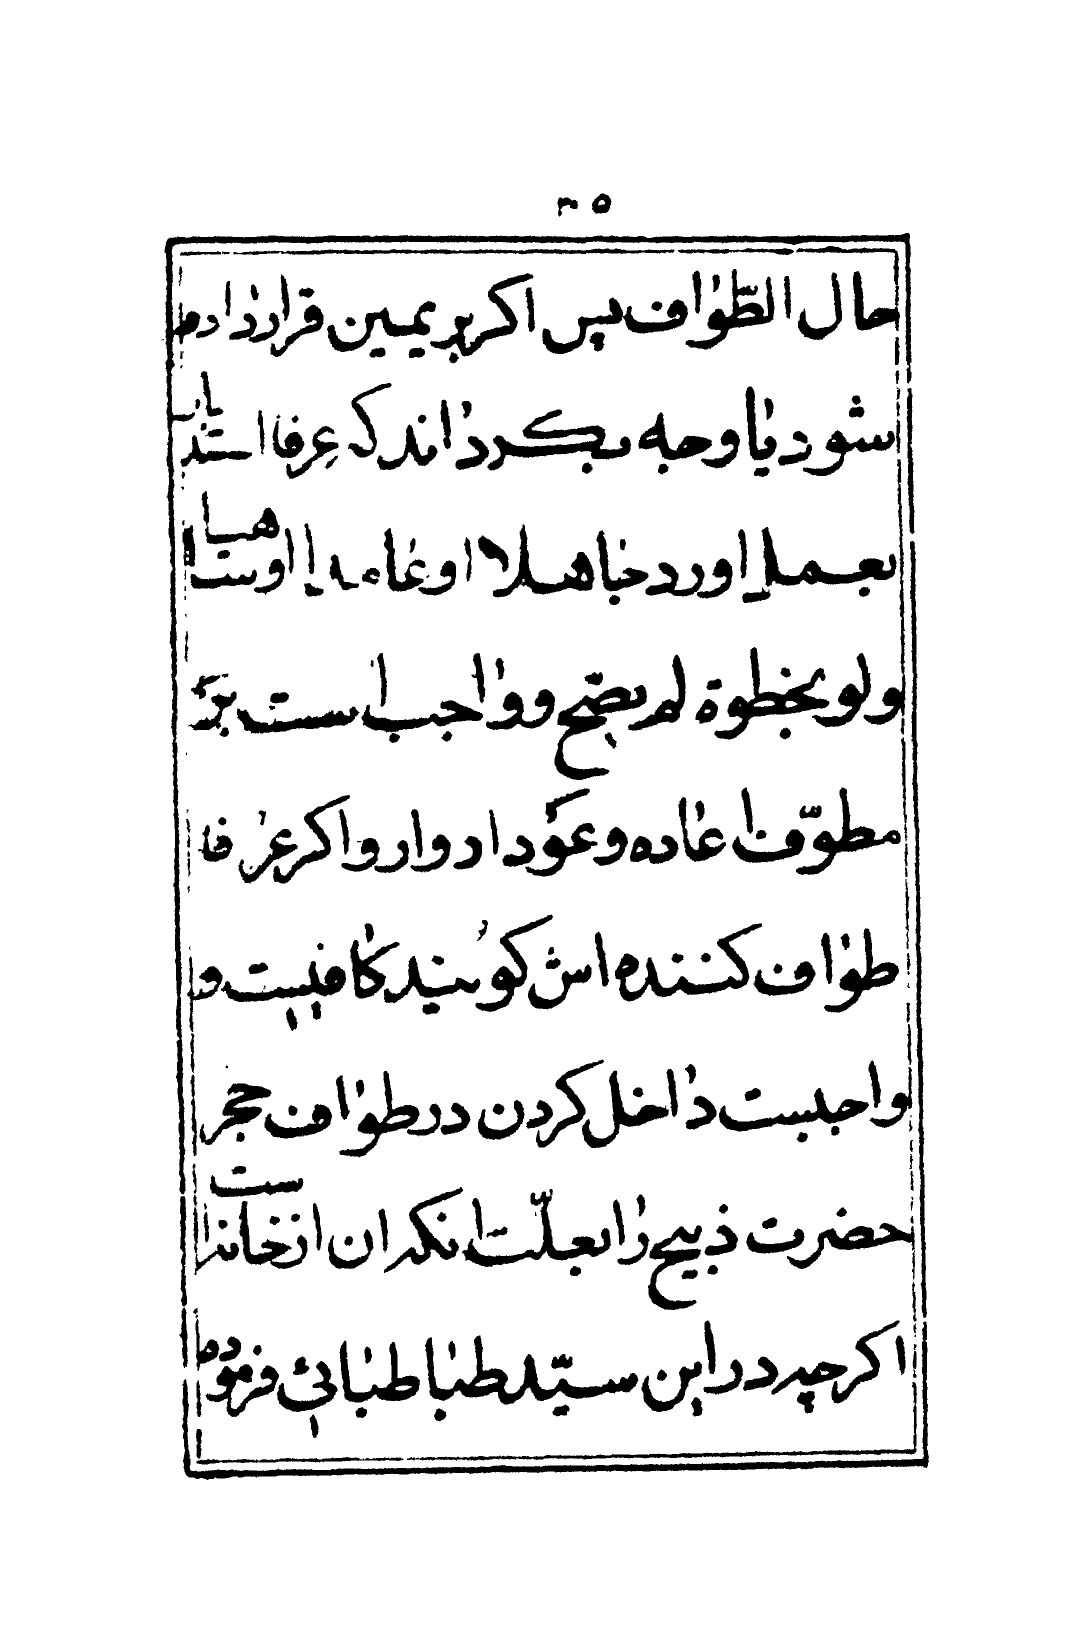 ۳۵
حال الطّواف پس اکر بر یمین قرار داده
شود یا وجه بکرداند که عرفا استدبار
بعمل اورد جاهلا او عامدا او ساهیا
ولو بخطوة لم یصح و واجب است بر
مطوّف اعاده و عود ادوار و اکر عرفا
طواف کننده اش کویند کافیست و
واجبست داخل کردن در طواف حجر
حضرت ذبیح را بعلّت انکه ان از خانه است
اکرچه در این سیّد طباطبائی فرموده